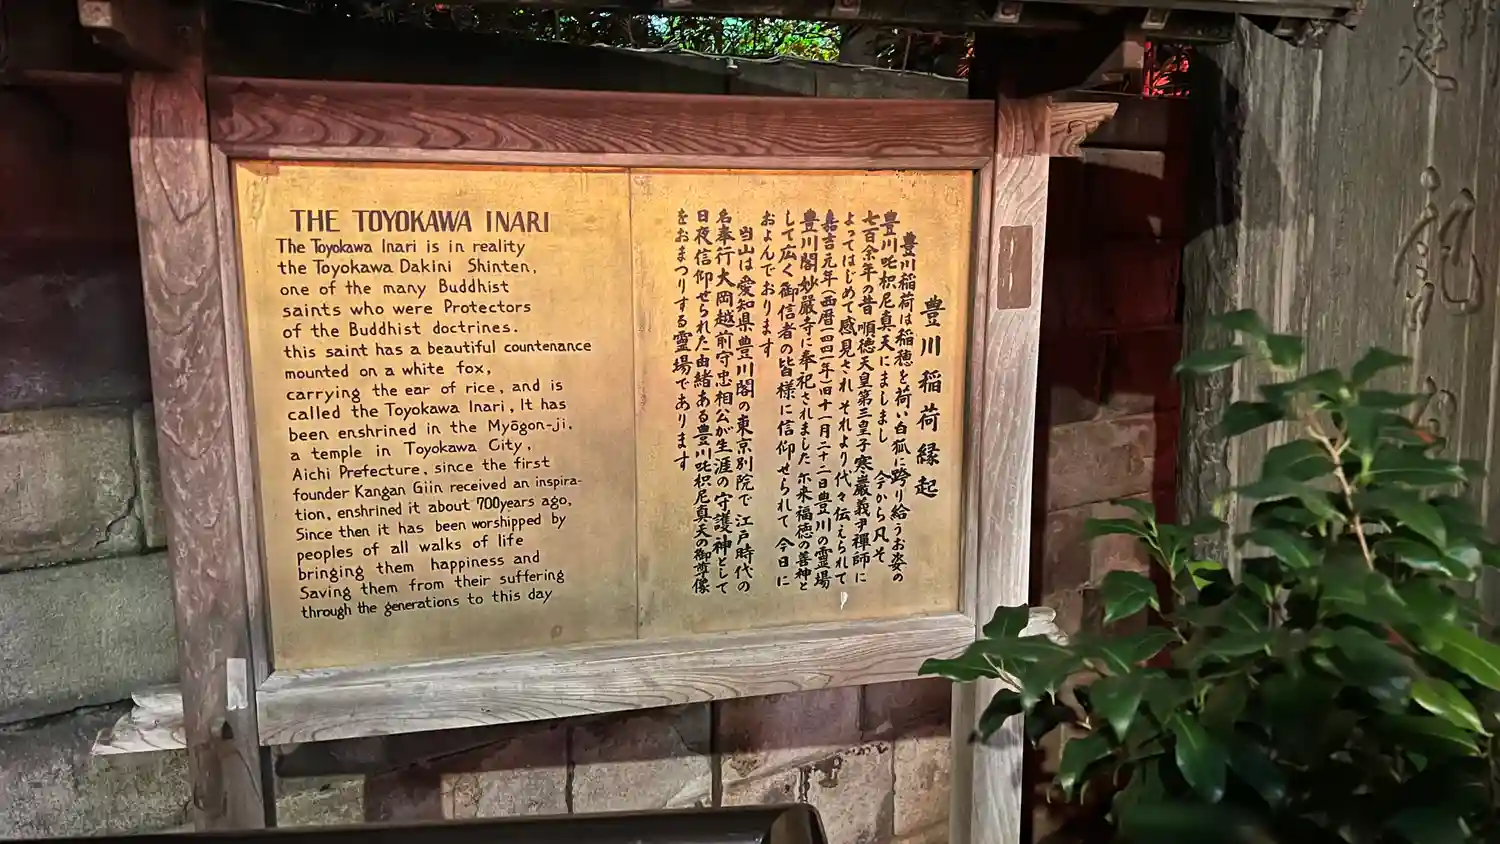 THE TOYOKAWA INARI
The Toyokawa Inari is in reality
the Toyokawa Dakini Shinten,
one of the many Buddhist
saints who were Protectors
of the Buddhist doctrines.
this saint has a beautiful countenance
mounted on a white fox,
carrying the ear of rice, and is
called the Toyokawa Inari, It has
been enshrined in the Myōgon-ji,
a temple in Toyokawa City,
Aichi Prefecture, since the first
founder Kangan Giin received an inspira-
tion, enshrined it about 700years ago,
Since then it has been worshipped by
peoples of all walks of life
bringing them happiness and
Saving them from their suffering
through the generations to this day
豊川稲荷縁起
豊川稲荷は稲穂を荷い白狐に跨り給うお姿の
豊川吒枳尼真天にましまし 今から凡そ
七百余年の昔 順徳天皇第三皇子寒巌義尹禅師に
よってはじめて感見され それより代々伝えられて
嘉吉元年(西暦一四四一年)旧十一月二十二日豊川の霊場
豊川閣妙厳寺に奉祀されました 尓来福徳の善神と
して広く御信者の皆様に信仰せられて 今日に
およんでおります
当山は愛知県豊川閣の東京別院で 江戸時代の
名奉行大岡越前守忠相公が生涯の守護神として
日夜信仰せられた由緒ある豊川吒枳尼真天の御尊像
をおまつりする霊場であります